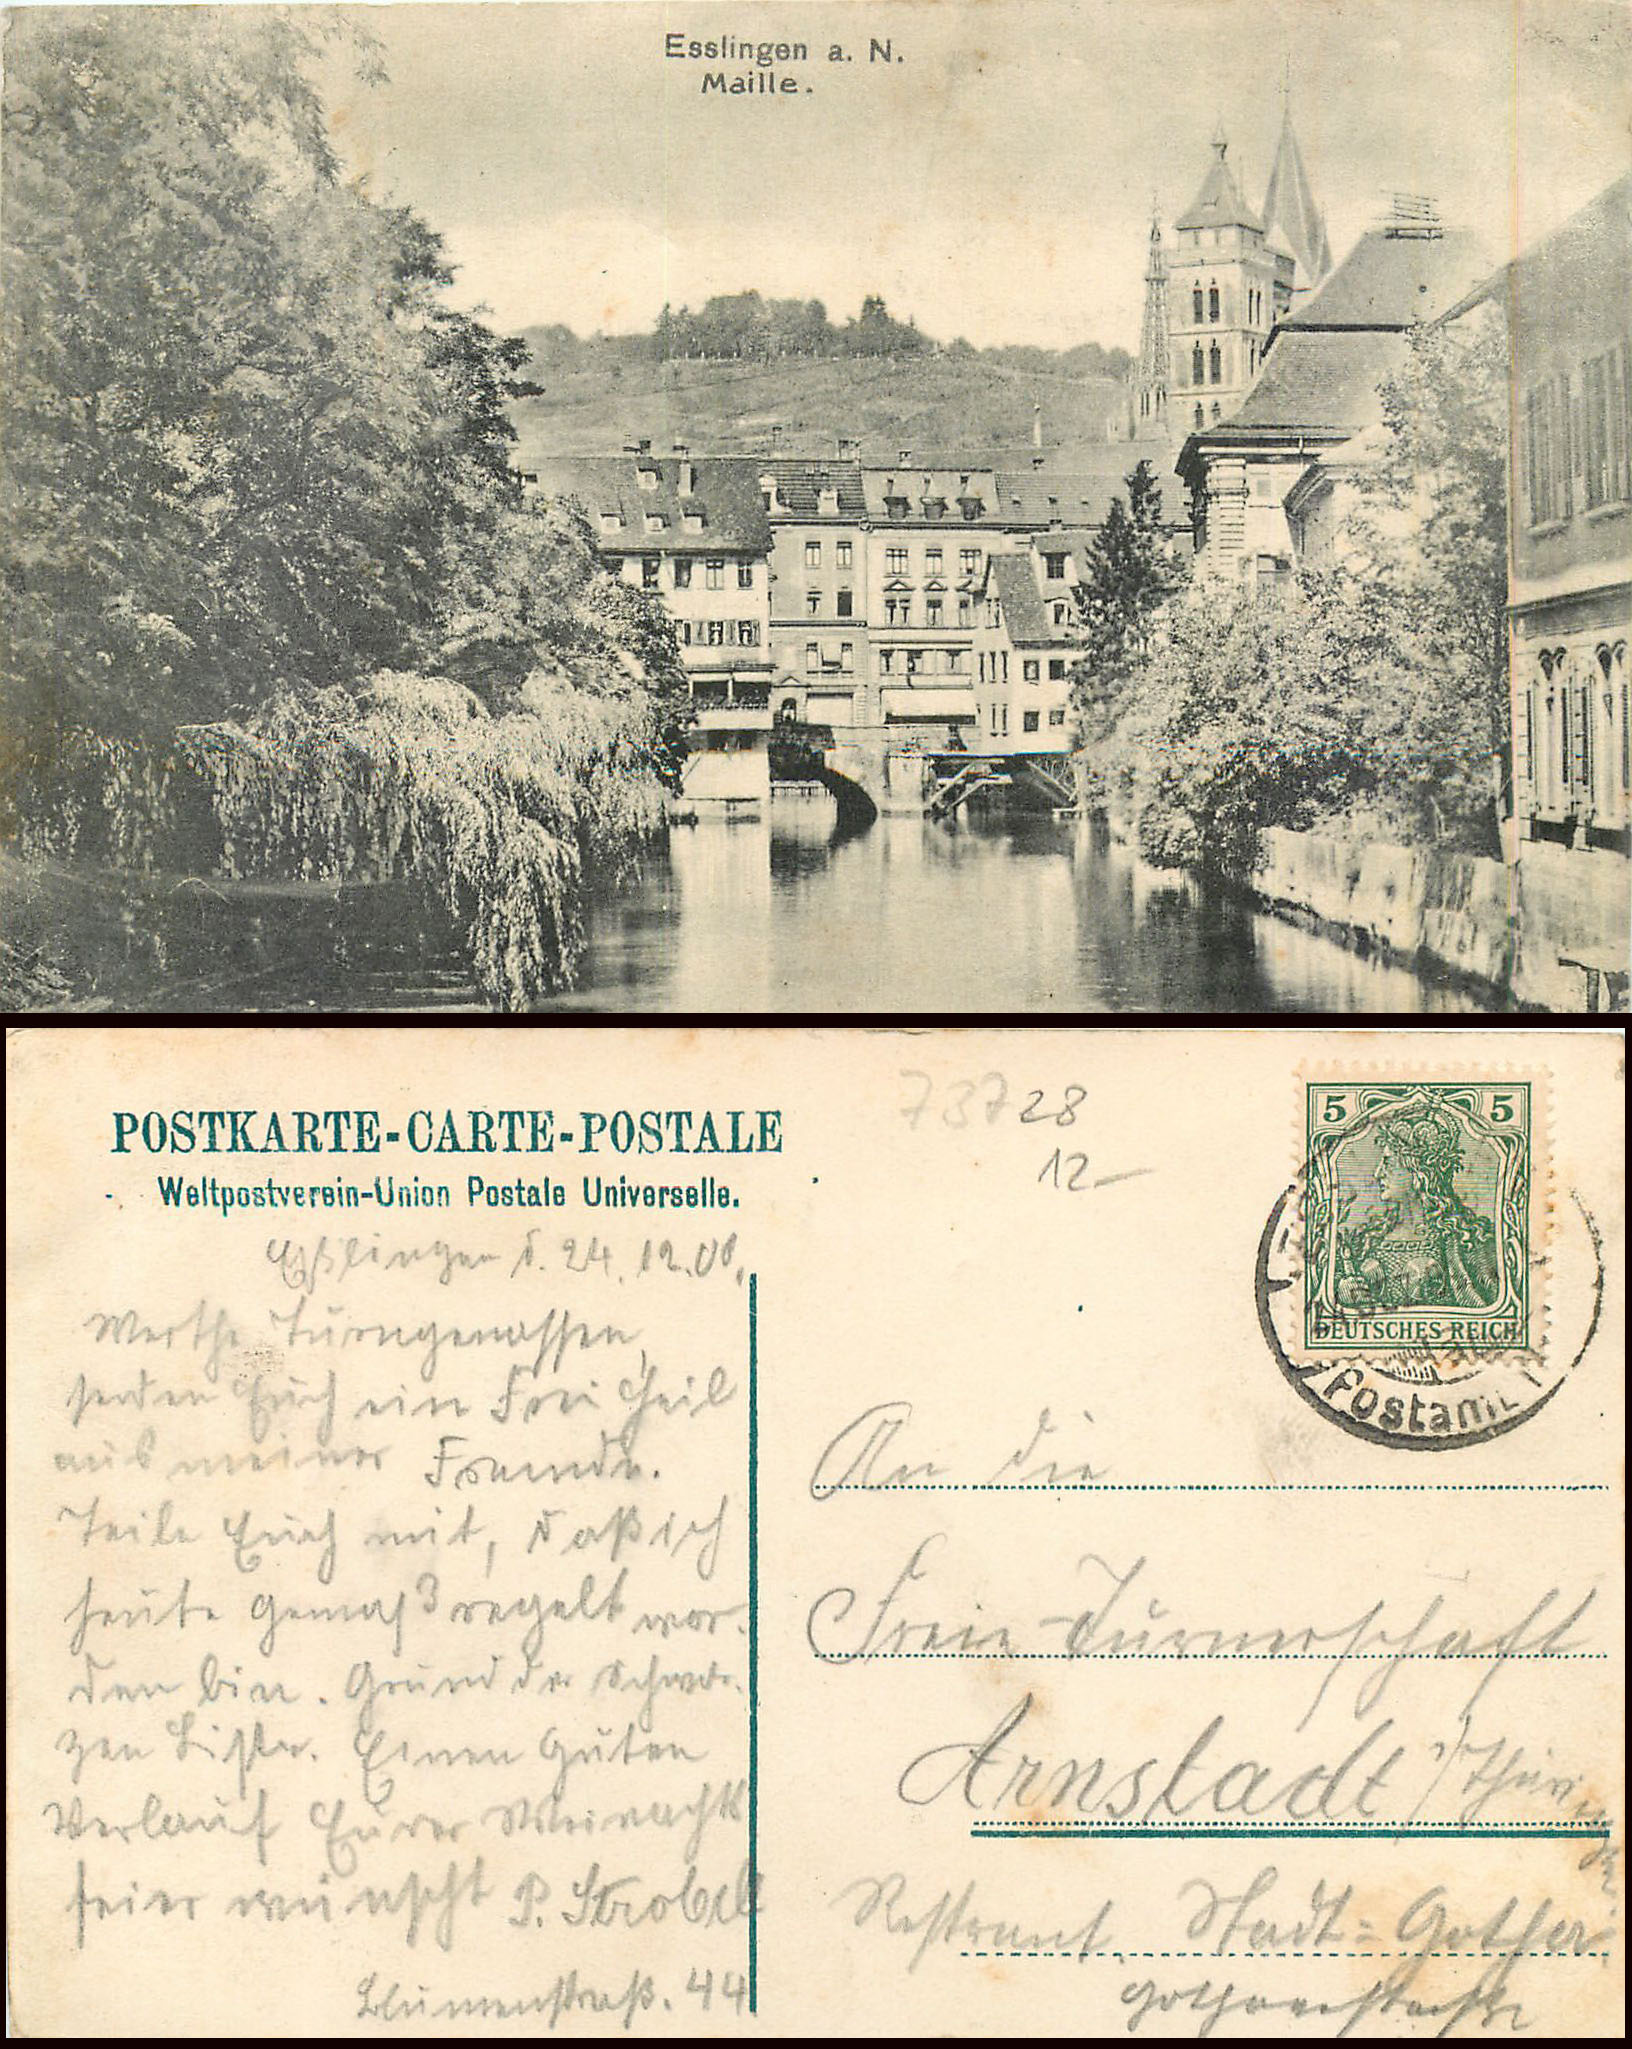 Esslingen a. N.
Maille.
POSTKARTE-CARTE-POSTALE
Weltpostverein-Union Postale Universelle.
73728
12-
5 5
DEUTSCHES REICH
Postamt
Eßlingen d. 24. 12. 08.
Werthe Turngenossen,
senden Euch ein Frei Heil
aus meiner Fremde.
Teile Euch mit, daß ich
heute gemaß regelt wor-
den bin. Grund der Schwar-
zen Liste. Einen Guten
Verlauf Eurer Weinachts
feier wünscht P. Strobel
Blumenstraß. 44
An die
Freie-Turnerschaft
Arnstadt i/Thüringen
Restraunt Stadt-Gotha
Gothaerstraße